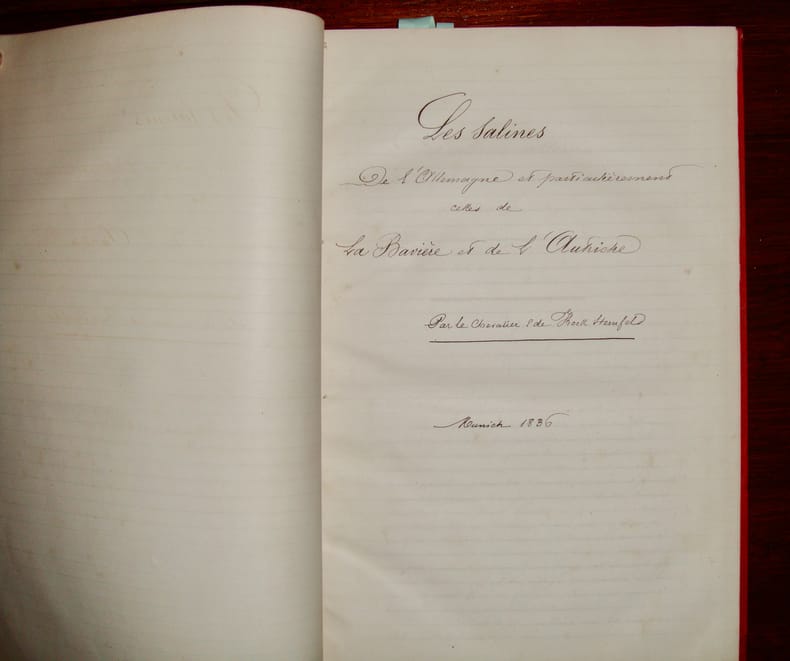 Les Salines
De l'Allemagne et particulièrement
celles de
La Bavière et de l'Autriche
Par le Chevalier de Koch Sternfeld
Munich 1836